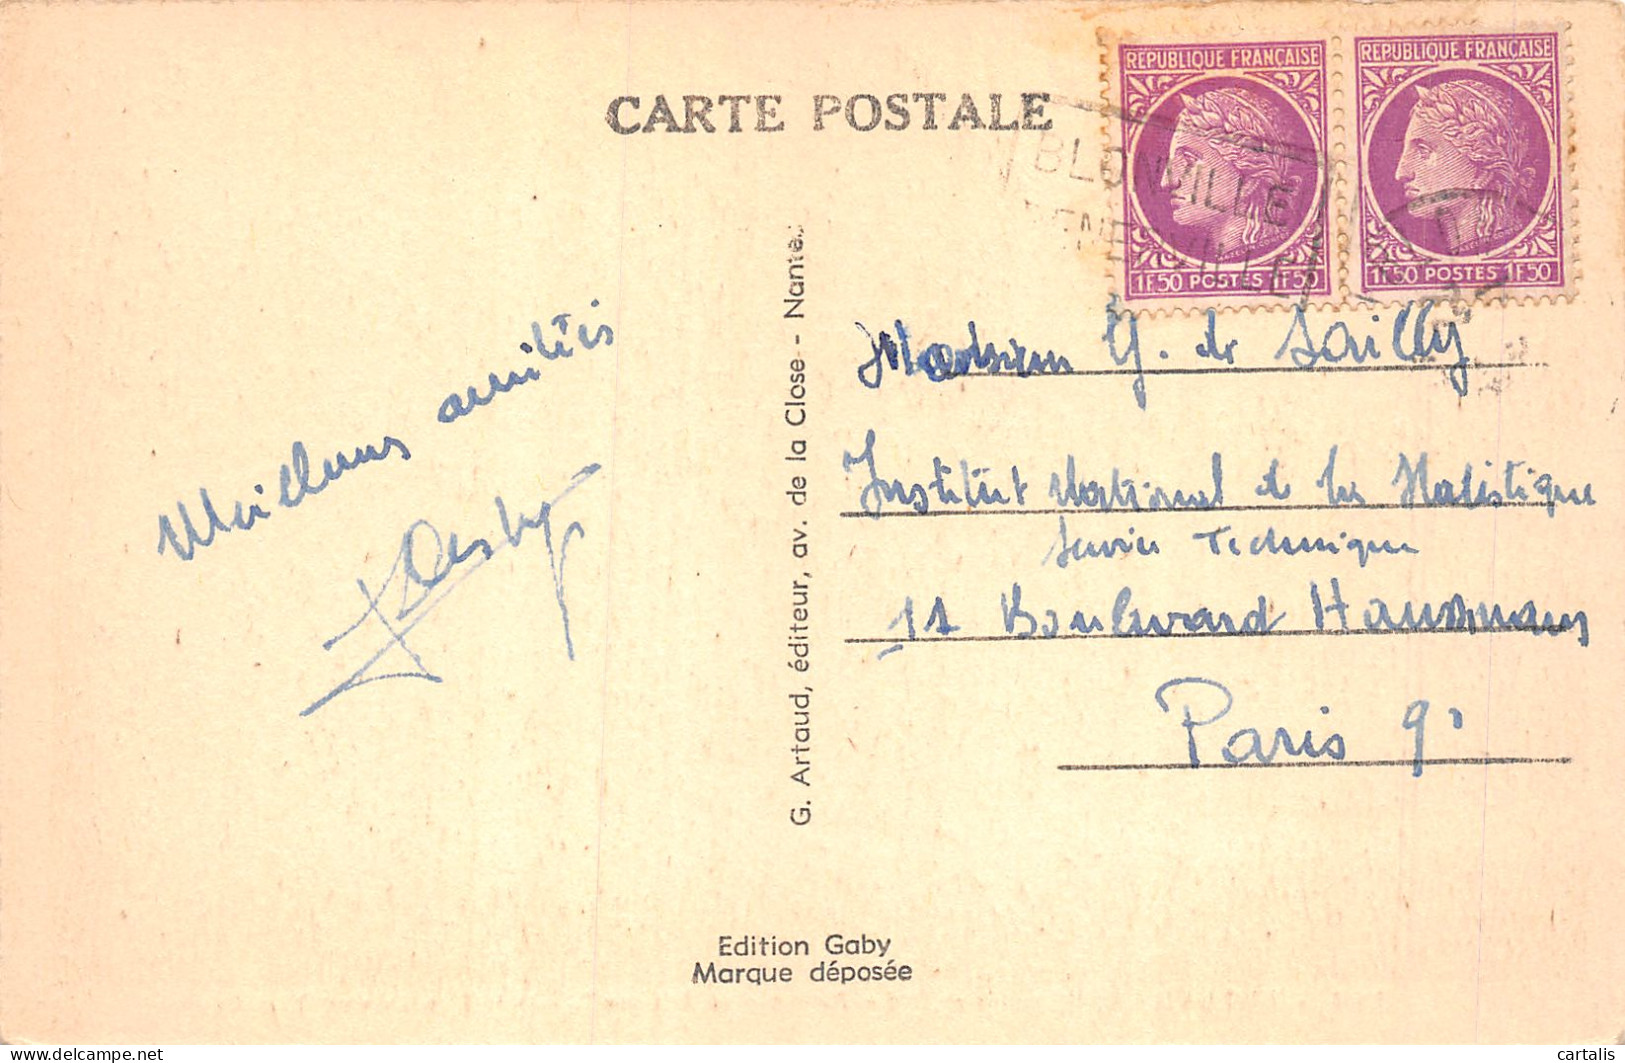 CARTE POSTALE
REPUBLIQUE FRANÇAISE
1F50 POSTES 1F50
REPUBLIQUE FRANÇAISE
1F50 POSTES 1F50
BLONVILLE
Meilleurs amitiés
G. Artaud, éditeur, av. de la Close - Nantes
Monsieur G. de Sailly
Institut National de la Statistique
Service Technique
11 Boulevard Haussmann
Paris 9e
Edition Gaby
Marque déposée
cartalis